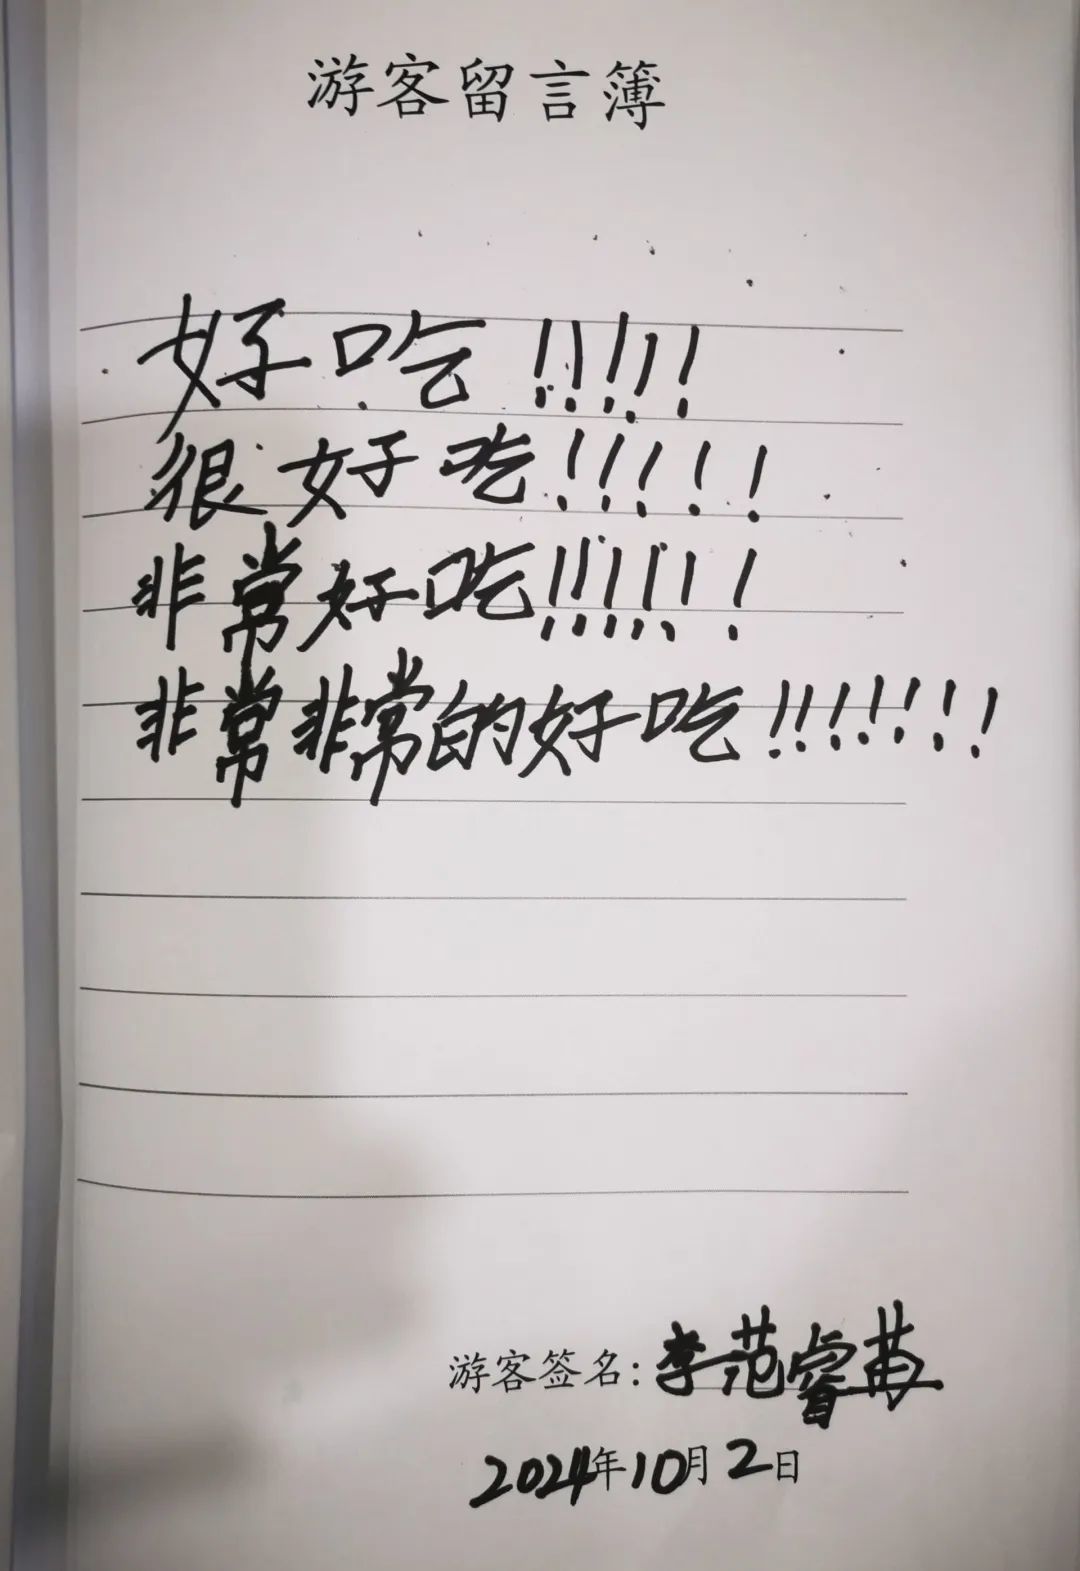 游客留言簿
好吃!!!!!
很好吃!!!!!
非常好吃!!!!!!
非常非常的好吃!!!!!!!
游客签名:李范睿苒
2024年10月2日